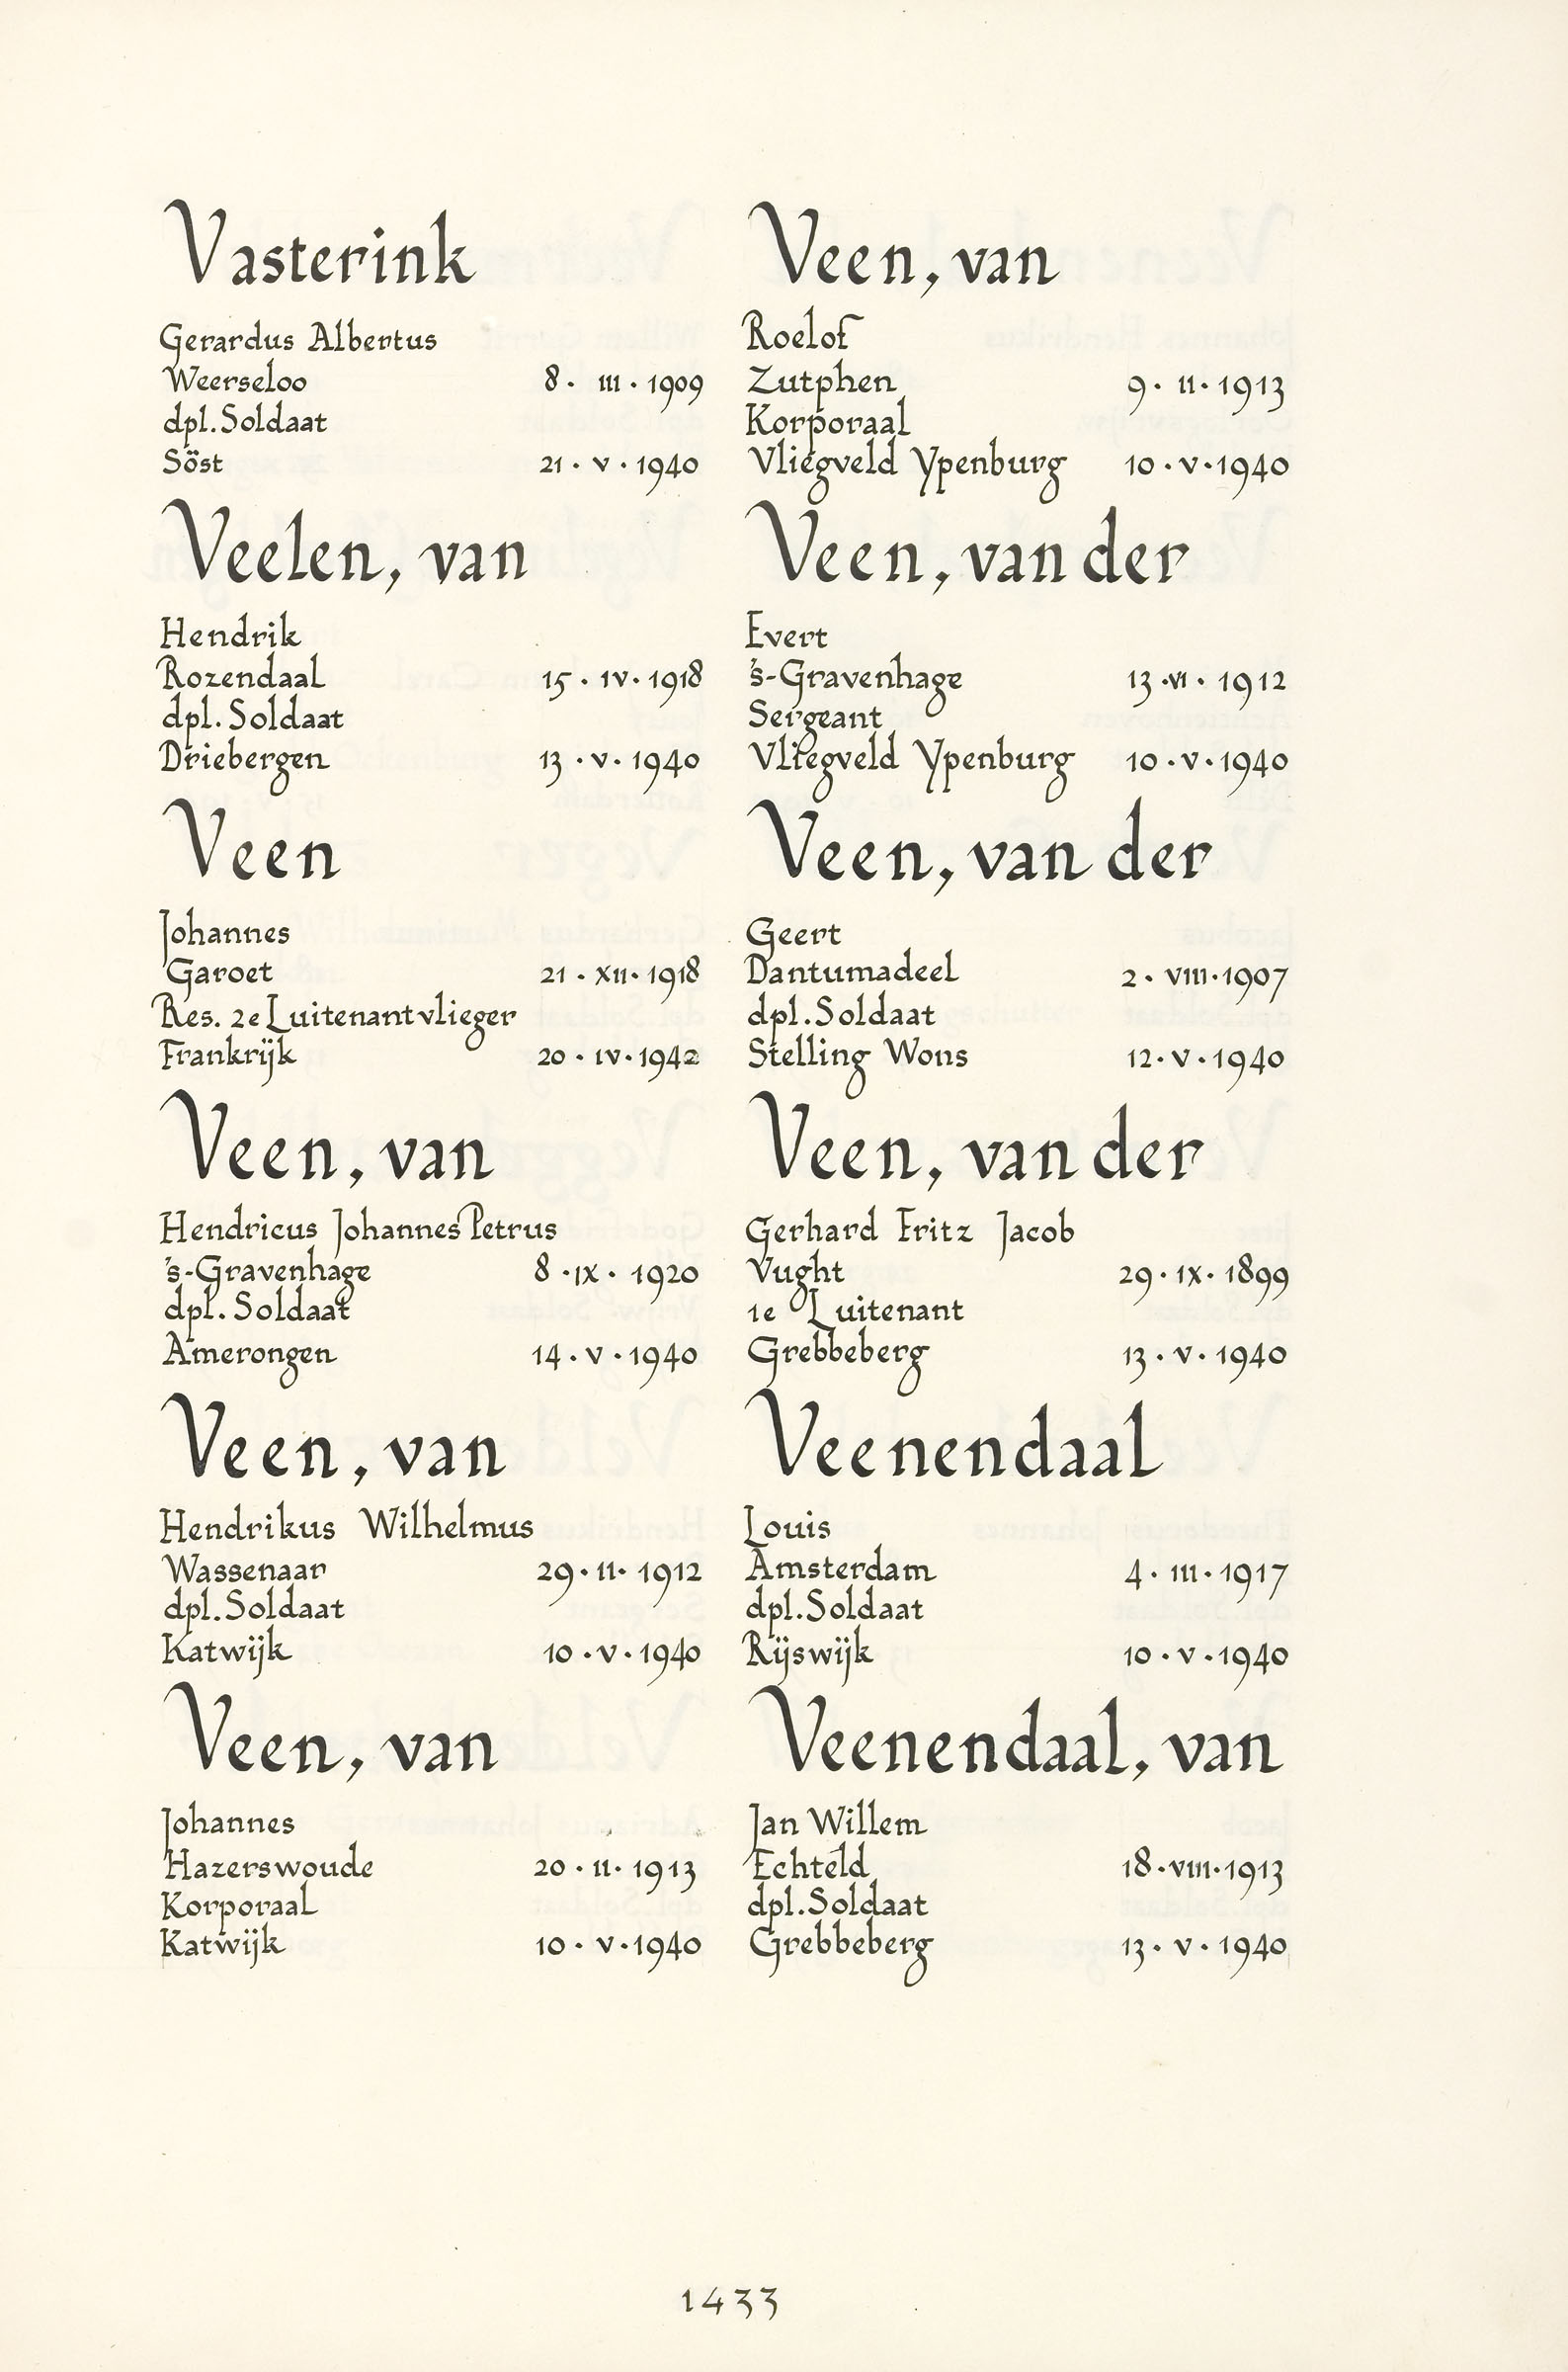 Vasterink
Gerardus Albertus
Weerseloo 8 · III · 1909
dpl. Soldaat
Söst 21 · V · 1940
Veelen, van
Hendrik
Rozendaal 15 · IV · 1918
dpl. Soldaat
Driebergen 13 · V · 1940
Veen
Johannes
Garoet 21 · XII · 1918
Res. 2e Luitenant vlieger
Frankrijk 20 · IV · 1942
Veen, van
Hendricus Johannes Petrus
's-Gravenhage 8 · IX · 1920
dpl. Soldaat
Amerongen 14 · V · 1940
Veen, van
Hendrikus Wilhelmus
Wassenaar 29 · II · 1912
dpl. Soldaat
Katwijk 10 · V · 1940
Veen, van
Johannes
Hazerswoude 20 · II · 1913
Korporaal
Katwijk 10 · V · 1940
Veen, van
Roelof
Zutphen 9 · II · 1913
Korporaal
Vliegveld Ypenburg 10 · V · 1940
Veen, van der
Evert
's-Gravenhage 13 · VI · 1912
Sergeant
Vliegveld Ypenburg 10 · V · 1940
Veen, van der
Geert
Dantumadeel 2 · VIII · 1907
dpl. Soldaat
Stelling Wons 12 · V · 1940
Veen, van der
Gerhard Fritz Jacob
Vught 29 · IX · 1899
1e Luitenant
Grebbeberg 13 · V · 1940
Veenendaal
Louis
Amsterdam 4 · III · 1917
dpl. Soldaat
Rijswijk 10 · V · 1940
Veenendaal, van
Jan Willem
Echteld 18 · VIII · 1913
dpl. Soldaat
Grebbeberg 13 · V · 1940
1433